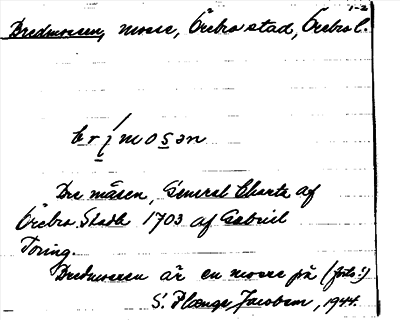 1-2
Bredmossen, mosse, Örebro stad, Örebro l.
brimosən
Bre måsen, General Charta af
Örebro Stadh 1703 af Gabriel
Toring.
Bredmossen är en mosse på (forts:)
S. Plænge Jacobsen, 1944.